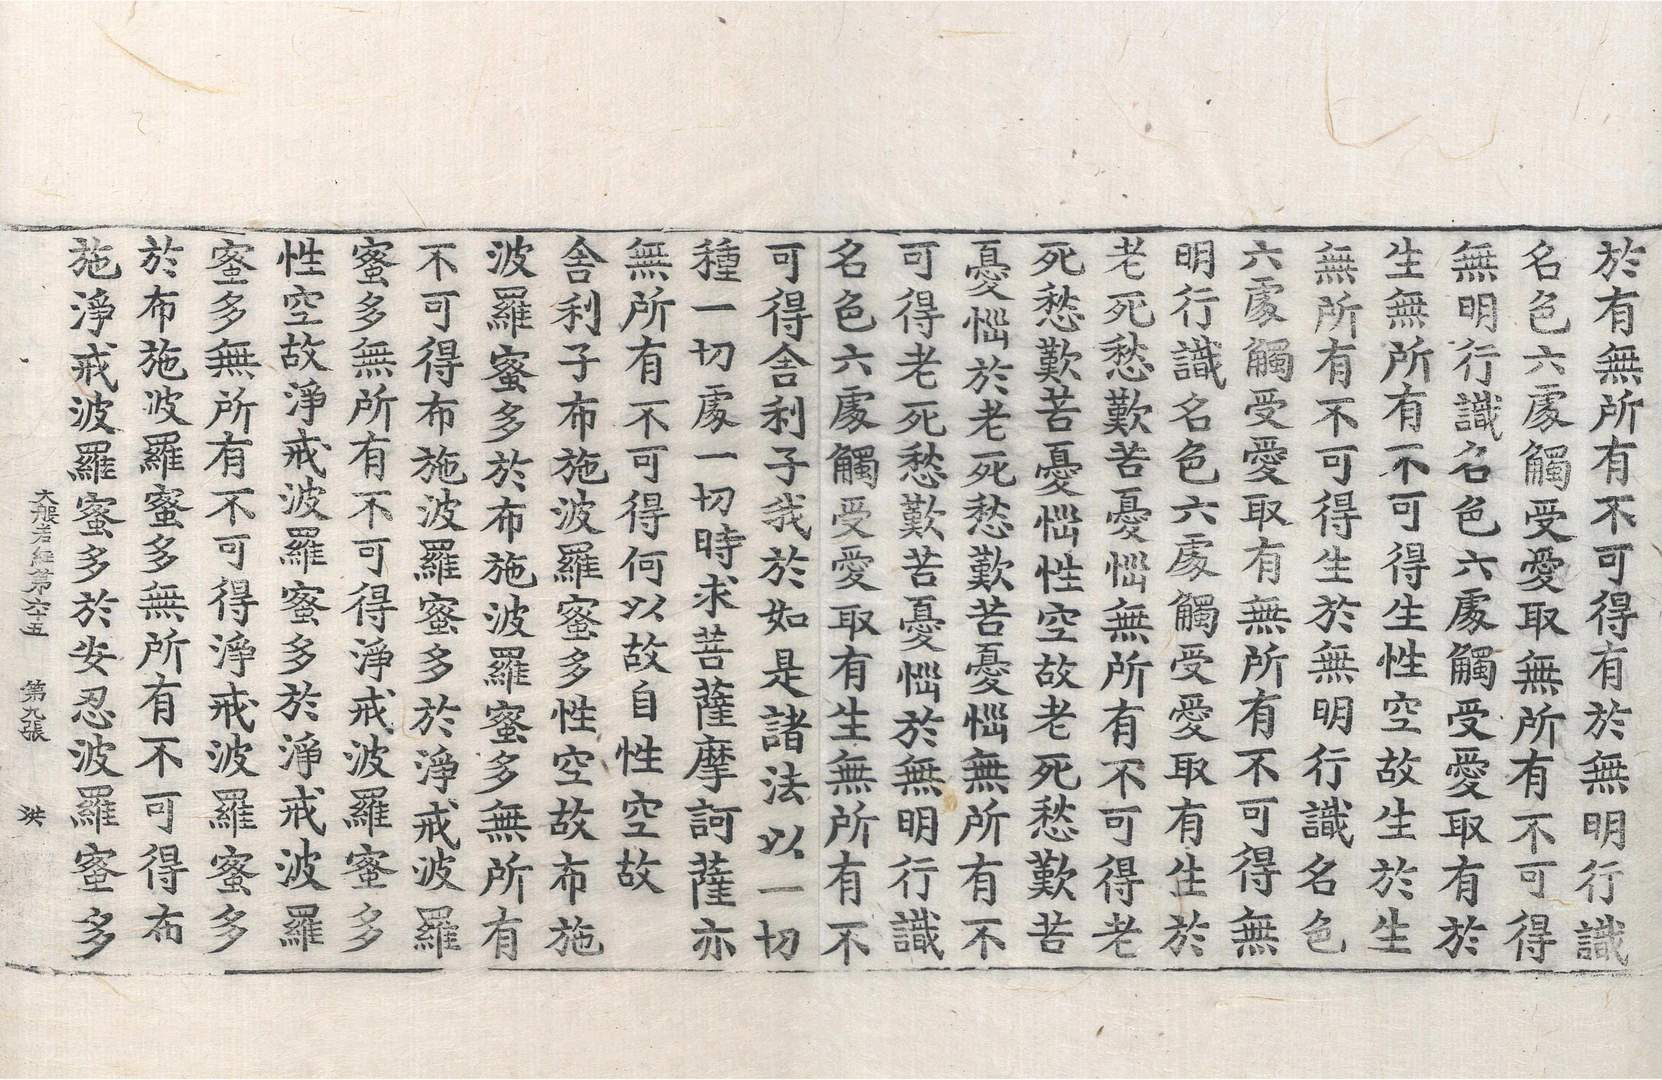 於有無所有不可得有於無明行識
名色六處觸受愛取無所有不可得
無明行識名色六處觸受愛取有於
生無所有不可得生性空故生於生
無所有不可得生於無明行識名色
六處觸受愛取有無所有不可得無
明行識名色六處觸受愛取有生於
老死愁歎苦憂惱無所有不可得老
死愁歎苦憂惱性空故老死愁歎苦
憂惱於老死愁歎苦憂惱無所有不
可得老死愁歎苦憂惱於無明行識
名色六處觸受愛取有生無所有不
可得舍利子我於如是諸法以一切
種一切處一切時求菩薩摩訶薩亦
無所有不可得何以故自性空故
舍利子布施波羅蜜多性空故布施
波羅蜜多於布施波羅蜜多無所有
不可得布施波羅蜜多於淨戒波羅
蜜多無所有不可得淨戒波羅蜜多
性空故淨戒波羅蜜多於淨戒波羅
蜜多無所有不可得淨戒波羅蜜多
於布施波羅蜜多無所有不可得布
施淨戒波羅蜜多於安忍波羅蜜多
大般若經第六十五 第九張 洪